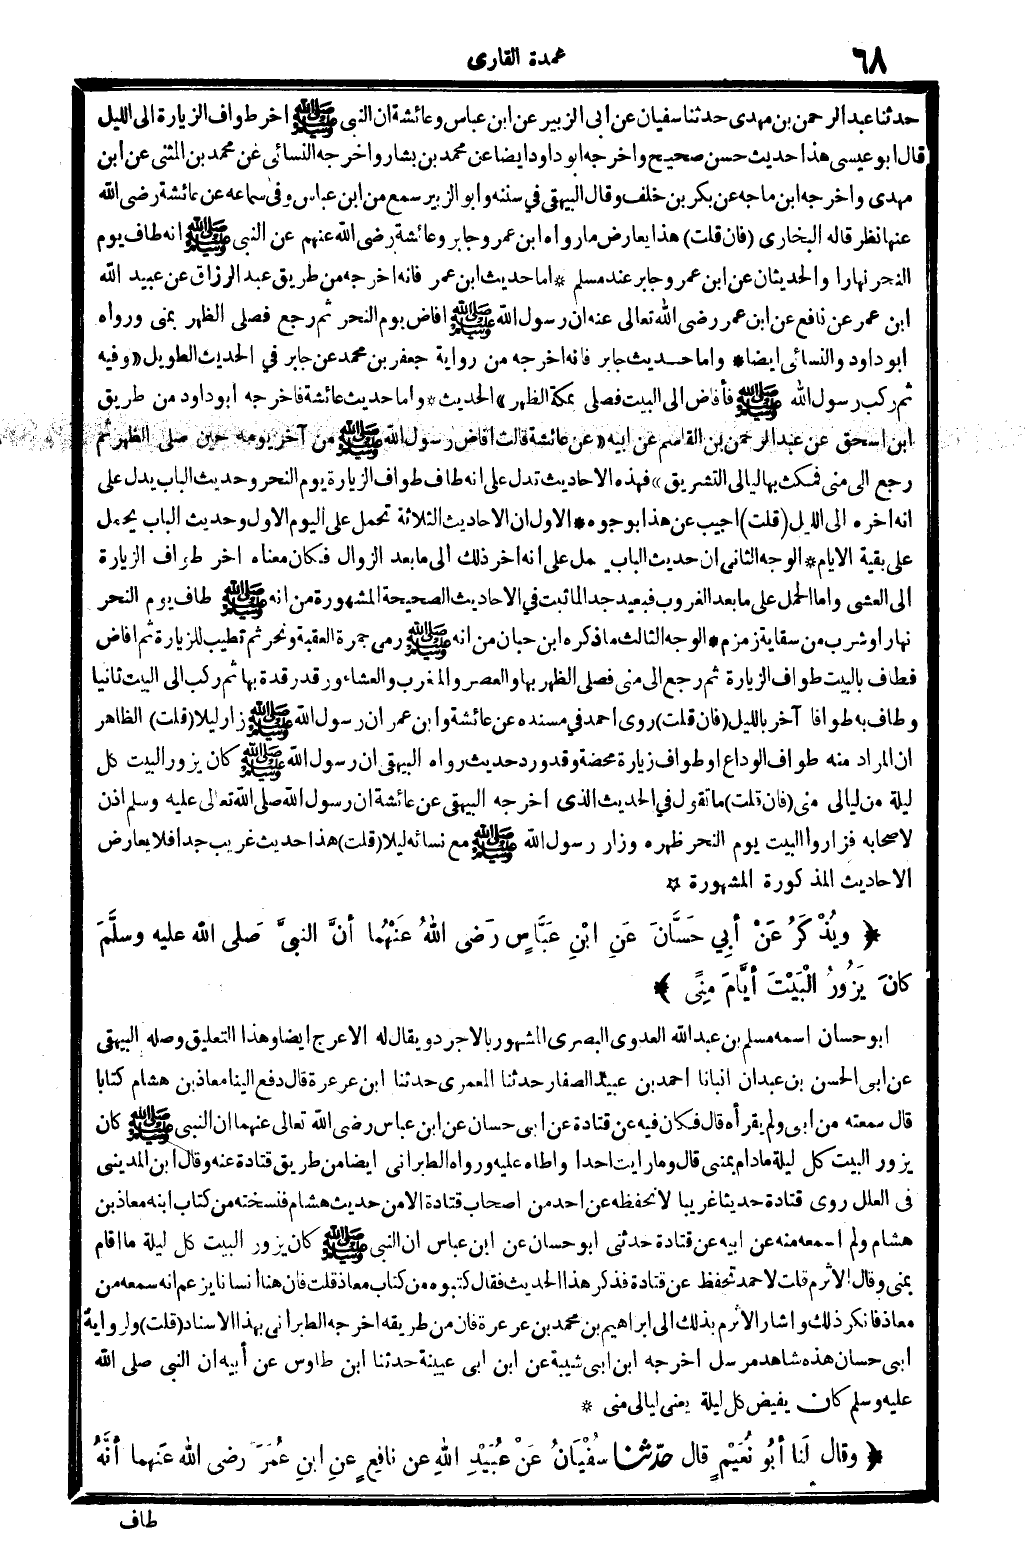 ٦٨
عمدة القارى
حدثنا عبد الرحمن بن مهدى حدثنا سفيان عن ابى الزبير عن ابن عباس وعائشة ان النبى ﷺ اخر طواف الزيارة الى الليل
قال ابو عيسى هذا حديث حسن صحيح واخرجه ابو داود ايضا عن محمد بن بشار واخرجه النسائى عن محمد بن المثنى عن ابن
مهدى واخرجه ابن ماجه عن بكر بن خلف وقال البيهقى في سننه وابو الزبير سمع من ابن عباس وفى سماعه عن عائشة رضى الله
عنها نظر قاله البخارى (فان قلت) هذا يعارض ما رواه ابن عمر وجابر وعائشة رضى الله عنهم عن النبى ﷺ انه طاف يوم
النحر نهارا والحديثان عن ابن عمر وجابر عند مسلم * اما حديث ابن عمر فانه اخرجه من طريق عبد الرزاق عن عبيد الله
ابن عمر عن نافع عن ابن عمر رضى الله تعالى عنه ان رسول الله ﷺ افاض يوم النحر ثم رجع فصلى الظهر بمنى ورواه
ابو داود والنسائى ايضا * واما حديث جابر فانه اخرجه من رواية جعفر بن محمد عن جابر في الحديث الطويل «وفيه
ثم ركب رسول الله ﷺ فأفاض الى البيت فصلى بمكة الظهر» الحديث * واما حديث عائشة فاخرجه ابو داود من طريق
ابن اسحق عن عبد الرحمن بن القاسم عن ابيه «عن عائشة قالت افاض رسول الله ﷺ من آخر يومه حين صلى الظهر ثم
رجع الى منى فمكث بها ليالى التشريق» فهذه الاحاديث تدل على انه طاف طواف الزيارة يوم النحر وحديث الباب يدل على
انه اخره الى الليل (قلت) اجيب عن هذا بوجوه * الاول ان الاحاديث الثلاثة تحمل على اليوم الاول وحديث الباب يحمل
على بقية الايام * الوجه الثانى ان حديث الباب يحمل على انه اخر ذلك الى ما بعد الزوال فكان معناه اخر طواف الزيارة
الى العشى واما الحمل على ما بعد الغروب فبعيد جدا لما ثبت في الاحاديث الصحيحة المشهورة من انه ﷺ طاف يوم النحر
نهارا وشرب من سقاية زمزم * الوجه الثالث ما ذكره ابن حبان من انه ﷺ رمى جمرة العقبة ونحر ثم تطيب للزيارة ثم افاض
فطاف بالبيت طواف الزيارة ثم رجع الى منى فصلى الظهر بها والعصر والمغرب والعشاء ورقد رقدة بها ثم ركب الى البيت ثانيا
وطاف به طوافا آخر بالليل (فان قلت) روى احمد في مسنده عن عائشة وابن عمر ان رسول الله ﷺ زار ليلا (قلت) الظاهر
ان المراد منه طواف الوداع او طواف زيارة محضة وقد ورد حديث رواه البيهقى ان رسول الله ﷺ كان يزور البيت كل
ليلة من ليالى منى (فان قلت) ما تقول في الحديث الذى اخرجه البيهقى عن عائشة ان رسول الله صلى الله تعالى عليه وسلم اذن
لاصحابه فزاروا البيت يوم النحر ظهره وزار رسول الله ﷺ مع نسائه ليلا (قلت) هذا حديث غريب جدا فلا يعارض
الاحاديث المذكورة المشهورة ☆
﴿ ويُذْكَرُ عَنْ أبِي حَسَّانَ عَنِ ابْنِ عَبَّاسٍ رَضى اللهُ عَنْهُما أنَّ النبىَّ صلى الله عليه وسلَّمَ
كانَ يَزُورُ الْبَيْتَ أيَّامَ مِنًى ﴾
ابو حسان اسمه مسلم بن عبد الله العدوى البصرى المشهور بالاجرد ويقال له الاعرج ايضا وهذا التعليق وصله البيهقى
عن ابى الحسن بن عبدان انبانا احمد بن عبيد الصفار حدثنا المعمرى حدثنا ابن عرعرة قال دفع الينا معاذ بن هشام كتابا
قال سمعته من أبى ولم يقرأه قال فكان فيه عن قتادة عن ابى حسان عن ابن عباس رضى الله تعالى عنهما ان النبى ﷺ كان
يزور البيت كل ليلة ما دام بمنى قال وما رايت احدا واطاه عليه ورواه الطبرانى ايضا من طريق قتادة عنه وقال ابن المدينى
فى العلل روى قتادة حديثا غريبا لا نحفظه عن احد من اصحاب قتادة الا من حديث هشام فنسخته من كتاب ابنه معاذ بن
هشام ولم اسمعه منه عن ابيه عن قتادة حدثنى ابو حسان عن ابن عباس ان النبى ﷺ كان يزور البيت كل ليلة ما اقام
بمنى وقال الاثرم قلت لاحمد تحفظ عن قتادة فذكر هذا الحديث فقال كتبوه من كتاب معاذ قلت فان هنا انسانا يزعم انه سمعه من
معاذ فانكر ذلك واشار الاثرم بذلك الى ابراهيم بن محمد بن عرعرة فان من طريقه اخرجه الطبرانى بهذا الاسناد (قلت) ولرواية
ابى حسان هذه شاهد مرسل اخرجه ابن ابى شيبة عن ابن ابى عيينة حدثنا ابن طاوس عن أبيه ان النبى صلى الله
عليه وسلم كان يفيض كل ليلة يعنى ليالى منى *
﴿ وقال لَنا أبُو نُعَيْمٍ قال حدّثنا سُفْيَانُ عَنْ عُبَيْدِ اللهِ عن نافِعٍ عنِ ابنِ عُمَرَ رضى الله عَنهما أنَّهُ
طاف